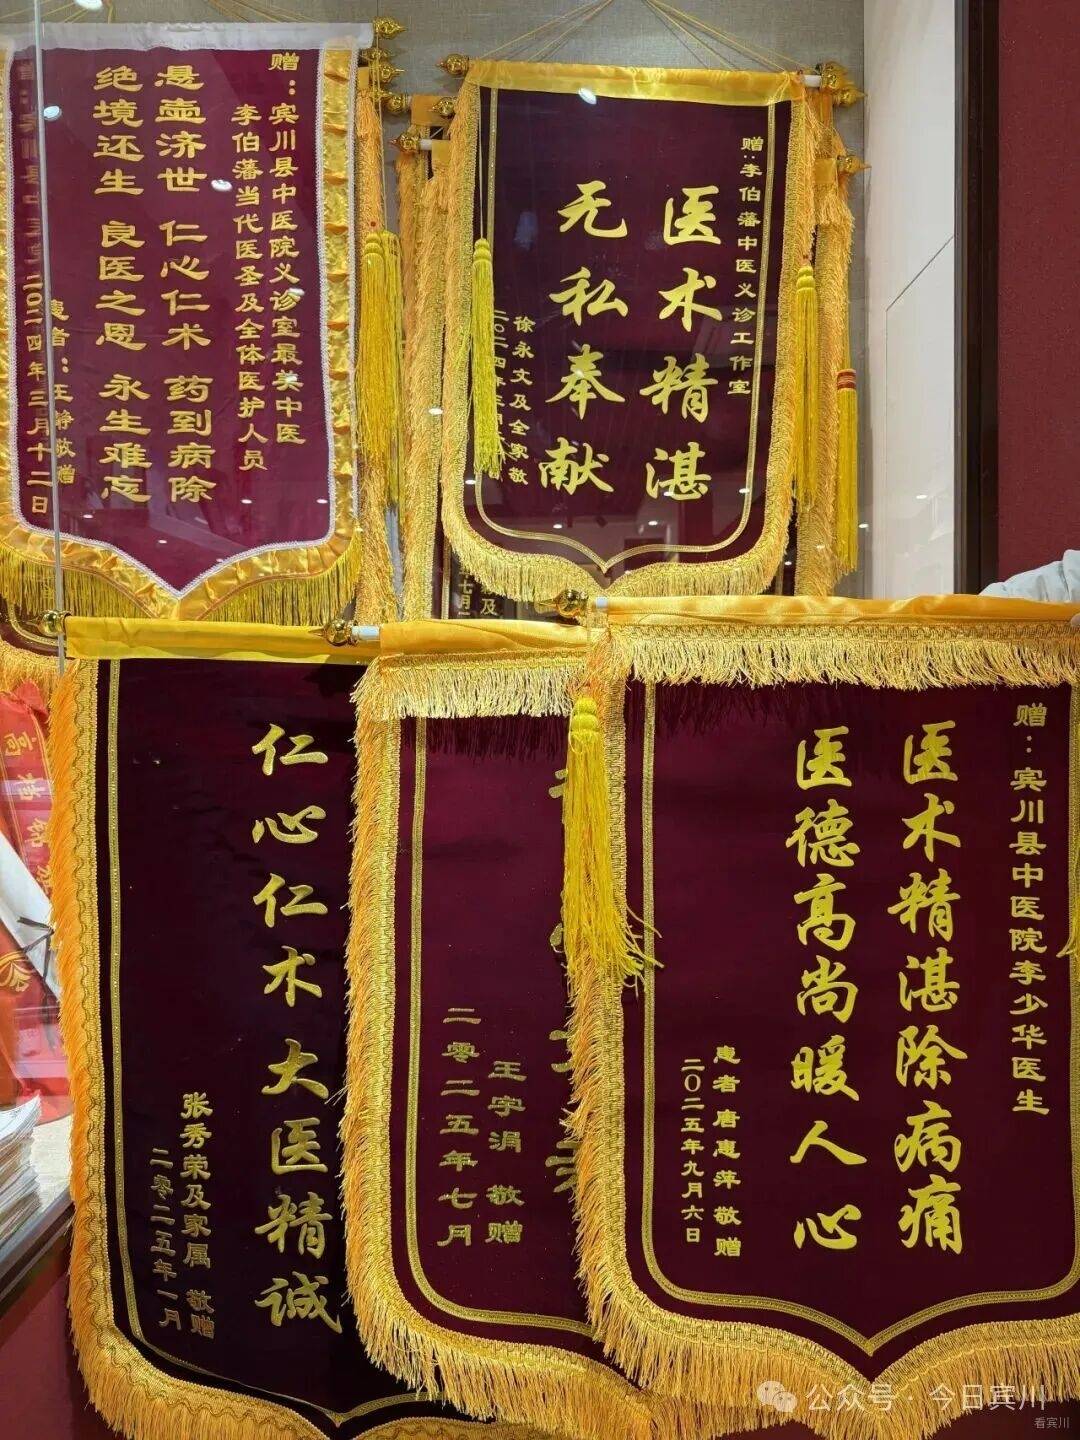 赠：宾川县中医院义诊室最美中医
李伯藩当代医圣及全体医护人员
悬壶济世 仁心仁术 药到病除
绝境还生 良医之恩 永生难忘
患者：王静敬赠
二〇二四年三月十二日
赠：李伯藩中医义诊工作室
医术精湛
无私奉献
徐永文及全家敬
二〇二四年三月
仁心仁术大医精诚
张秀荣及家属 敬赠
二零二五年一月
王字涓 敬赠
二零二五年七月
赠：宾川县中医院李少华医生
医术精湛除病痛
医德高尚暖人心
患者唐惠萍敬赠
二〇二五年九月六日
公众号·今日宾川
看宾川